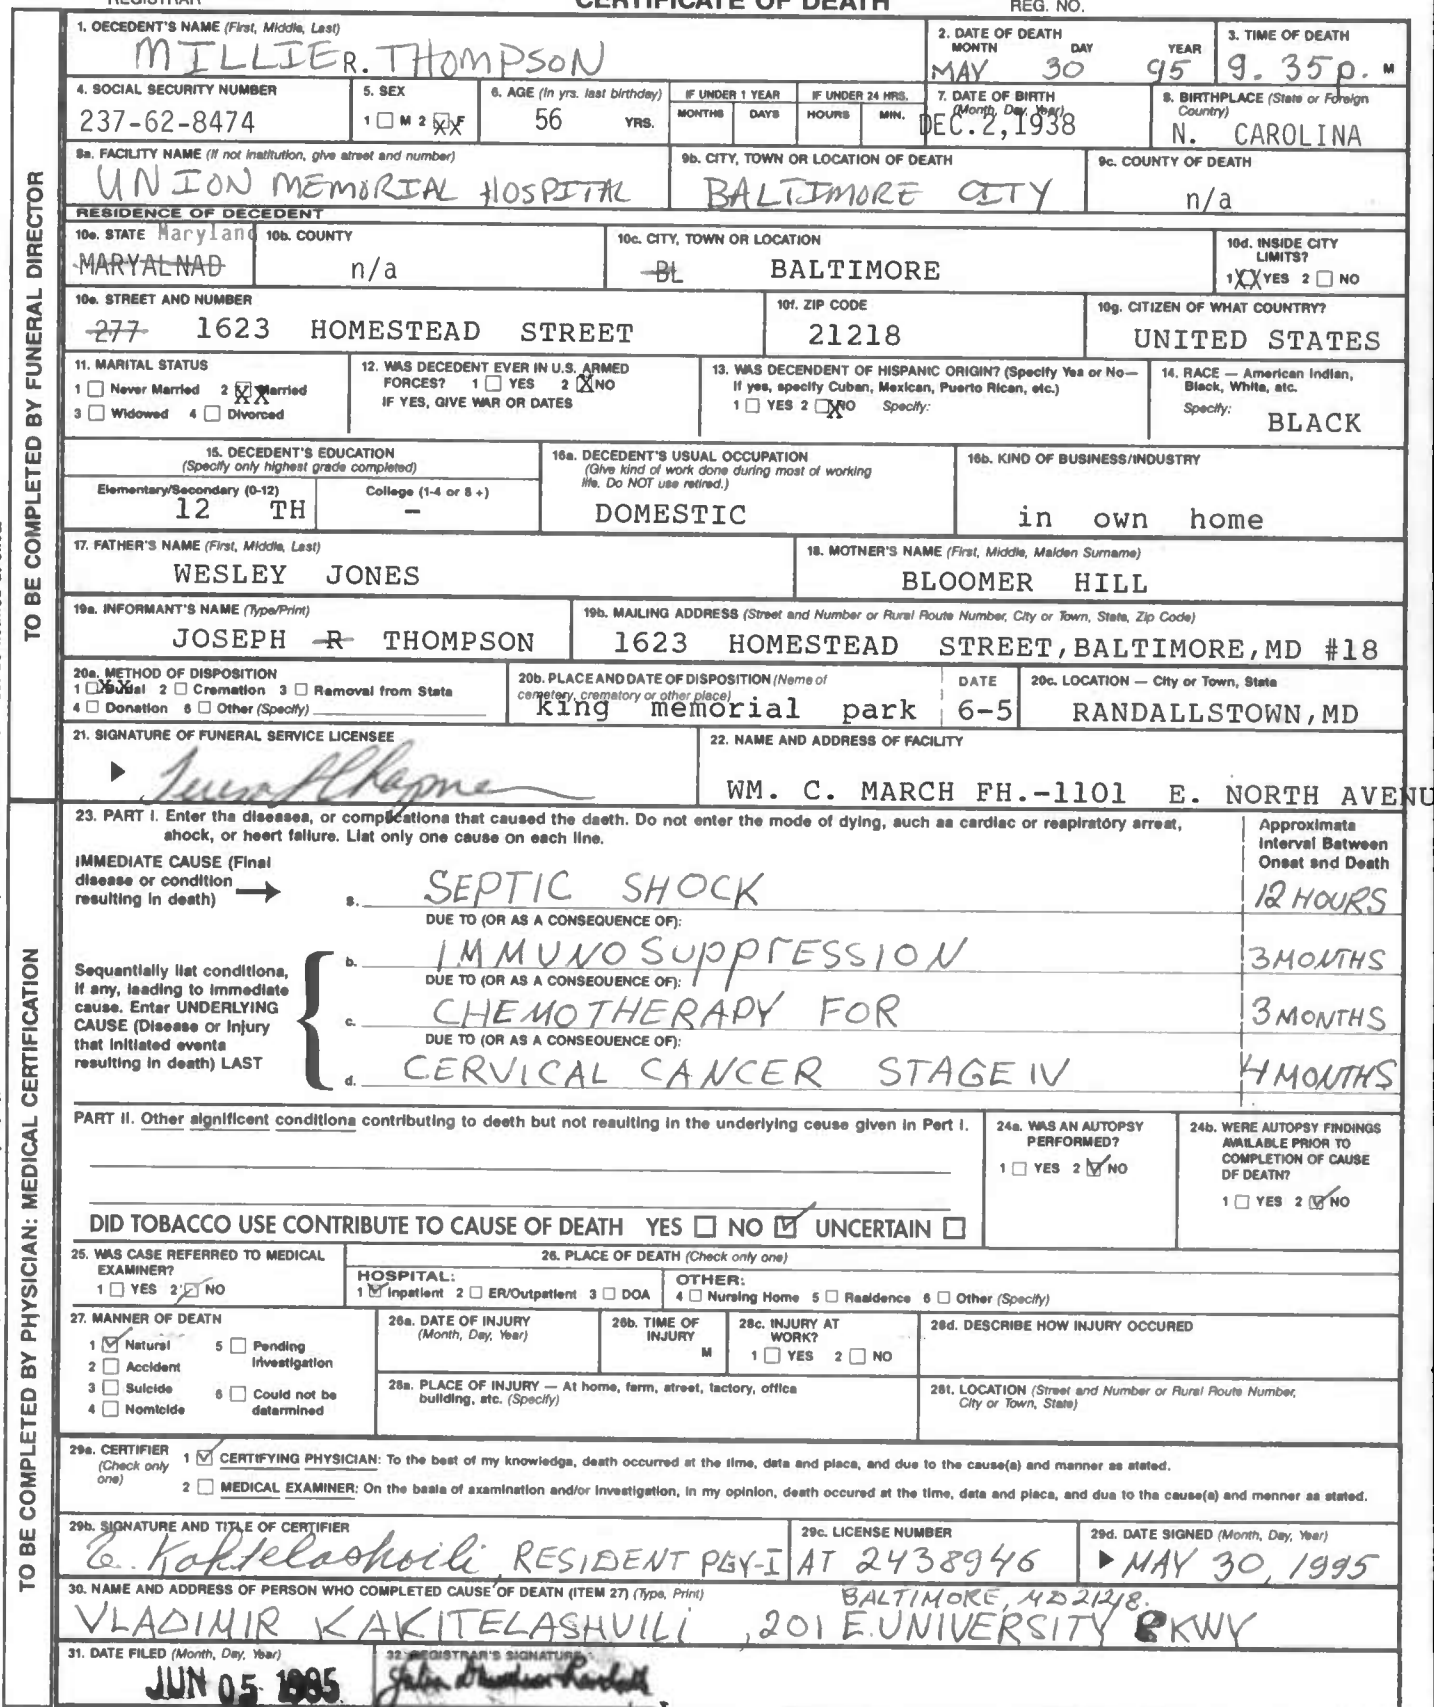 REGISTRAR CERTIFICATE OF DEATH REG. NO.
1. DECEDENT'S NAME (First, Middle, Last)
MILLIE R. THOMPSON
2. DATE OF DEATH
MONTH DAY YEAR
MAY 30 95
3. TIME OF DEATH
9. 35p. M
4. SOCIAL SECURITY NUMBER
237-62-8474
5. SEX
1 M 2 XX F
6. AGE (In yrs. last birthday)
56 YRS.
IF UNDER 1 YEAR
MONTHS DAYS
IF UNDER 24 HRS.
HOURS MIN.
7. DATE OF BIRTH
(Month, Day, Year)
DEC.2,1938
8. BIRTHPLACE (State or Foreign
Country)
N. CAROLINA
9a. FACILITY NAME (If not institution, give street and number)
UNION MEMORIAL HOSPITAL
9b. CITY, TOWN OR LOCATION OF DEATH
BALTIMORE CITY
9c. COUNTY OF DEATH
n/a
RESIDENCE OF DECEDENT
10a. STATE Maryland
MARYALNAD
10b. COUNTY
n/a
10c. CITY, TOWN OR LOCATION
BL BALTIMORE
10d. INSIDE CITY
LIMITS?
1 XX YES 2 NO
10e. STREET AND NUMBER
277 1623 HOMESTEAD STREET
10f. ZIP CODE
21218
10g. CITIZEN OF WHAT COUNTRY?
UNITED STATES
11. MARITAL STATUS
1 Never Married 2 XX Married
3 Widowed 4 Divorced
12. WAS DECEDENT EVER IN U.S. ARMED
FORCES? 1 YES 2 X NO
IF YES, GIVE WAR OR DATES
13. WAS DECENDENT OF HISPANIC ORIGIN? (Specify Yes or No—
If yes, specify Cuban, Mexican, Puerto Rican, etc.)
1 YES 2 X NO Specify:
14. RACE — American Indian,
Black, White, etc.
Specify:
BLACK
15. DECEDENT'S EDUCATION
(Specify only highest grade completed)
Elementary/Secondary (0-12) College (1-4 or 5 +)
12 TH –
16a. DECEDENT'S USUAL OCCUPATION
(Give kind of work done during most of working
life. Do NOT use retired.)
DOMESTIC
16b. KIND OF BUSINESS/INDUSTRY
in own home
17. FATHER'S NAME (First, Middle, Last)
WESLEY JONES
18. MOTHER'S NAME (First, Middle, Maiden Surname)
BLOOMER HILL
19a. INFORMANT'S NAME (Type/Print)
JOSEPH R THOMPSON
19b. MAILING ADDRESS (Street and Number or Rural Route Number, City or Town, State, Zip Code)
1623 HOMESTEAD STREET,BALTIMORE,MD #18
20a. METHOD OF DISPOSITION
1 XX Burial 2 Cremation 3 Removal from State
4 Donation 5 Other (Specify)
20b. PLACE AND DATE OF DISPOSITION (Name of
cemetery, crematory or other place)
king memorial park
DATE
6-5
20c. LOCATION — City or Town, State
RANDALLSTOWN,MD
21. SIGNATURE OF FUNERAL SERVICE LICENSEE
22. NAME AND ADDRESS OF FACILITY
WM. C. MARCH FH.-1101 E. NORTH AVENU
TO BE COMPLETED BY FUNERAL DIRECTOR
23. PART I. Enter the diseases, or complications that caused the death. Do not enter the mode of dying, such as cardiac or respiratory arrest,
shock, or heart failure. List only one cause on each line.
Approximate
Interval Between
Onset and Death
IMMEDIATE CAUSE (Final
disease or condition
resulting in death)
a. SEPTIC SHOCK 12 HOURS
DUE TO (OR AS A CONSEQUENCE OF):
b. IMMUNOSUPPRESSION 3 MONTHS
DUE TO (OR AS A CONSEQUENCE OF):
c. CHEMOTHERAPY FOR 3 MONTHS
DUE TO (OR AS A CONSEQUENCE OF):
d. CERVICAL CANCER STAGE IV 4 MONTHS
Sequentially list conditions,
if any, leading to immediate
cause. Enter UNDERLYING
CAUSE (Disease or injury
that initiated events
resulting in death) LAST
PART II. Other significent conditions contributing to death but not resulting in the underlying cause given in Part I.
24a. WAS AN AUTOPSY
PERFORMED?
1 YES 2 ✓ NO
24b. WERE AUTOPSY FINDINGS
AVAILABLE PRIOR TO
COMPLETION OF CAUSE
OF DEATH?
1 YES 2 ✓ NO
DID TOBACCO USE CONTRIBUTE TO CAUSE OF DEATH YES NO ✓ UNCERTAIN
25. WAS CASE REFERRED TO MEDICAL
EXAMINER?
1 YES 2 ✓ NO
26. PLACE OF DEATH (Check only one)
HOSPITAL:
1 ✓ Inpatient 2 ER/Outpatient 3 DOA
OTHER:
4 Nursing Home 5 Residence 6 Other (Specify)
27. MANNER OF DEATH
1 ✓ Natural 5 Pending
Investigation
2 Accident
3 Suicide 6 Could not be
determined
4 Homicide
28a. DATE OF INJURY
(Month, Day, Year)
28b. TIME OF
INJURY
M
28c. INJURY AT
WORK?
1 YES 2 NO
28d. DESCRIBE HOW INJURY OCCURED
28e. PLACE OF INJURY — At home, farm, street, factory, office
building, etc. (Specify)
28f. LOCATION (Street and Number or Rural Route Number,
City or Town, State)
29a. CERTIFIER
(Check only
one)
1 ✓ CERTIFYING PHYSICIAN: To the best of my knowledge, death occurred at the time, date and place, and due to the cause(s) and manner as stated.
2 MEDICAL EXAMINER: On the basis of examination and/or investigation, in my opinion, death occured at the time, date and place, and due to the cause(s) and manner as stated.
29b. SIGNATURE AND TITLE OF CERTIFIER
RESIDENT PGY-I
29c. LICENSE NUMBER
AT 2438946
29d. DATE SIGNED (Month, Day, Year)
MAY 30, 1995
30. NAME AND ADDRESS OF PERSON WHO COMPLETED CAUSE OF DEATH (ITEM 27) (Type, Print)
BALTIMORE, MD 21218.
VLADIMIR KAKITELASHVILI , 201 E. UNIVERSITY PKWY
31. DATE FILED (Month, Day, Year)
JUN 05 1995
32. REGISTRAR'S SIGNATURE
TO BE COMPLETED BY PHYSICIAN: MEDICAL CERTIFICATION